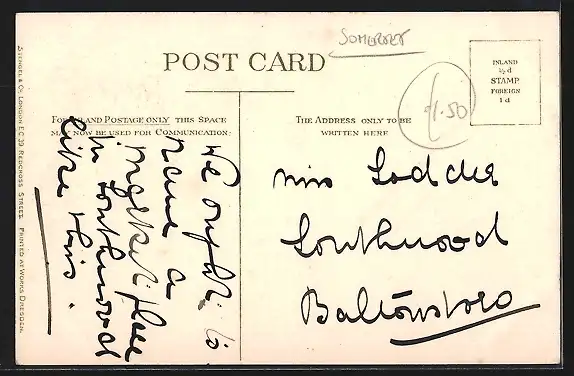 SOMERSET
POST CARD
INLAND
½d
STAMP
FOREIGN
1d
1.50
FOR INLAND POSTAGE ONLY THIS SPACE
MAY NOW BE USED FOR COMMUNICATION:
THE ADDRESS ONLY TO BE
WRITTEN HERE
We ought to
have a
market place
in Southwood
like this.
Miss
Southwood
Baltonsboro
STENGEL & CO. LONDON E.C. 39 REDCROSS STREET. PRINTED AT WORKS DRESDEN.